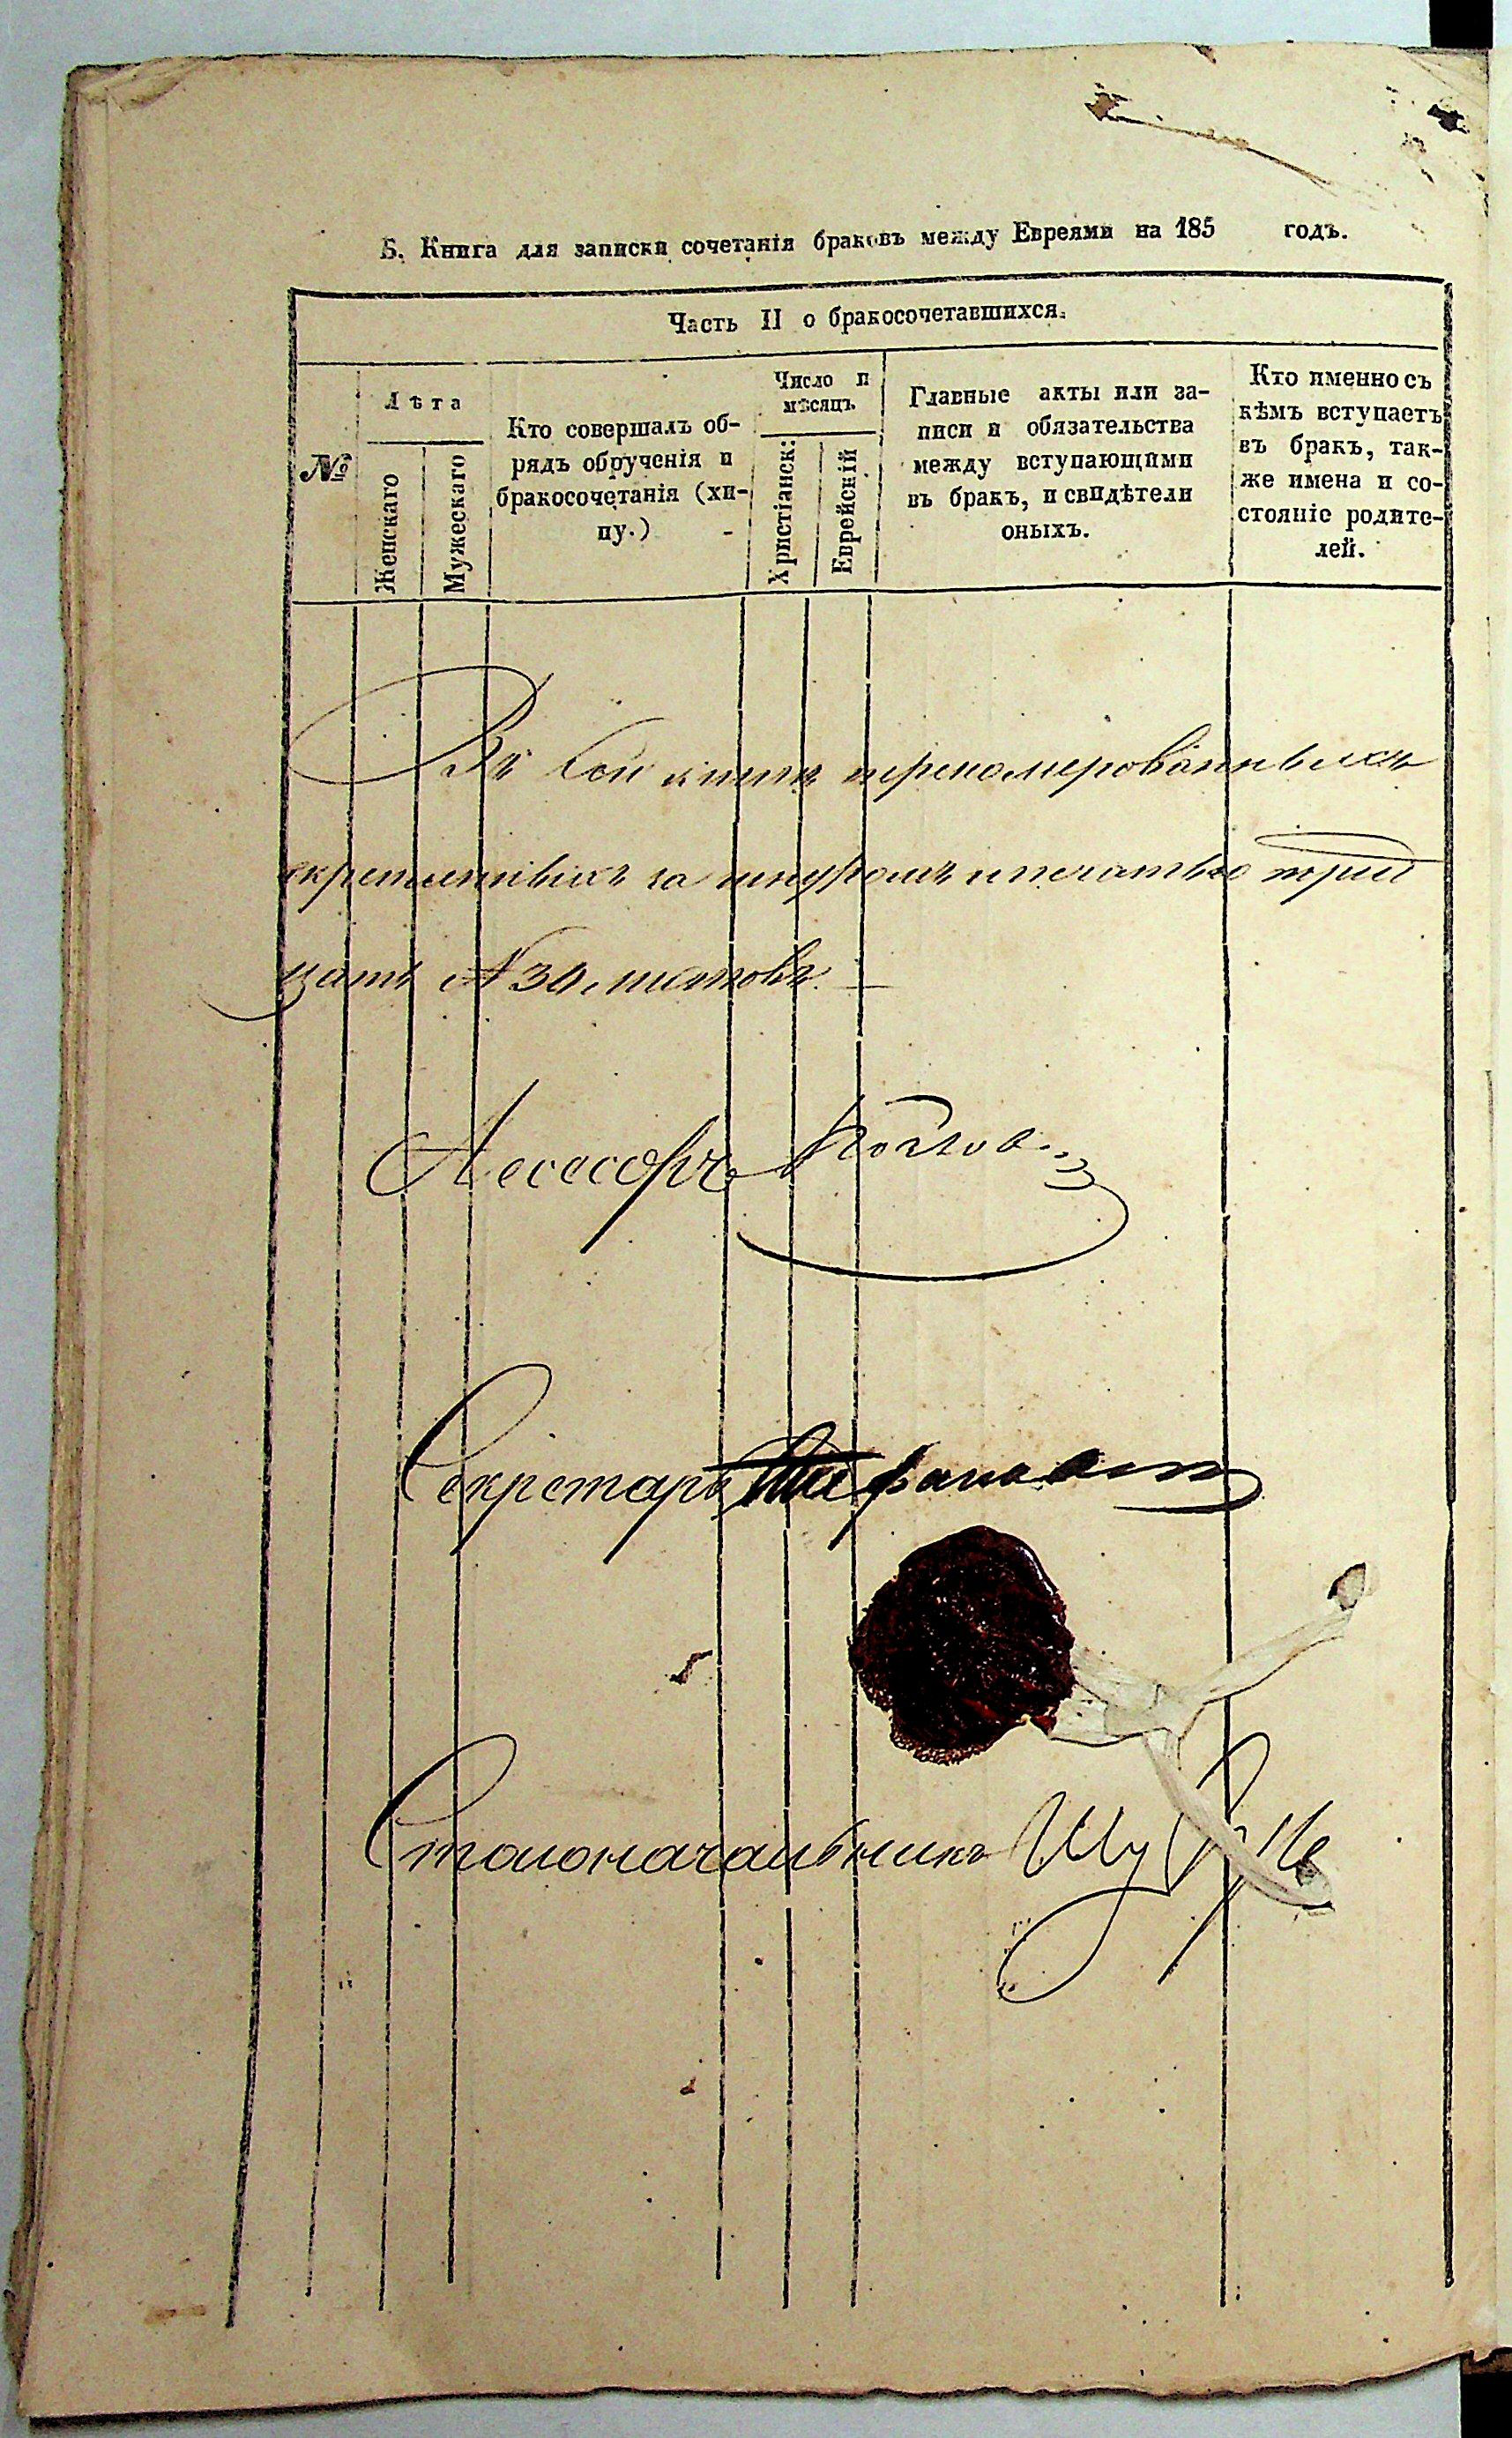 Б. Книга для записки сочетанія браковъ между Евреями на 185 годъ.
Часть II о бракосочетавшихся.
№
Лѣта
Женскаго
Мужескаго
Кто совершалъ об-
рядъ обрученія и
бракосочетанія (хи-
пу.)
Число и
мѣсяцъ
Христіанск:
Еврейскій
Главные акты или за-
писи и обязательства
между вступающими
въ бракъ, и свидѣтели
оныхъ.
Кто именно съ
кѣмъ вступаетъ
въ бракъ, так-
же имена и со-
стояніе родите-
лей.
Въ сей книгѣ переномерованныхъ
скрепленныхъ за шнуромъ и печатью трид
цать № 30 листовъ.
Ассесоръ
Секретарь
Столоначальникъ